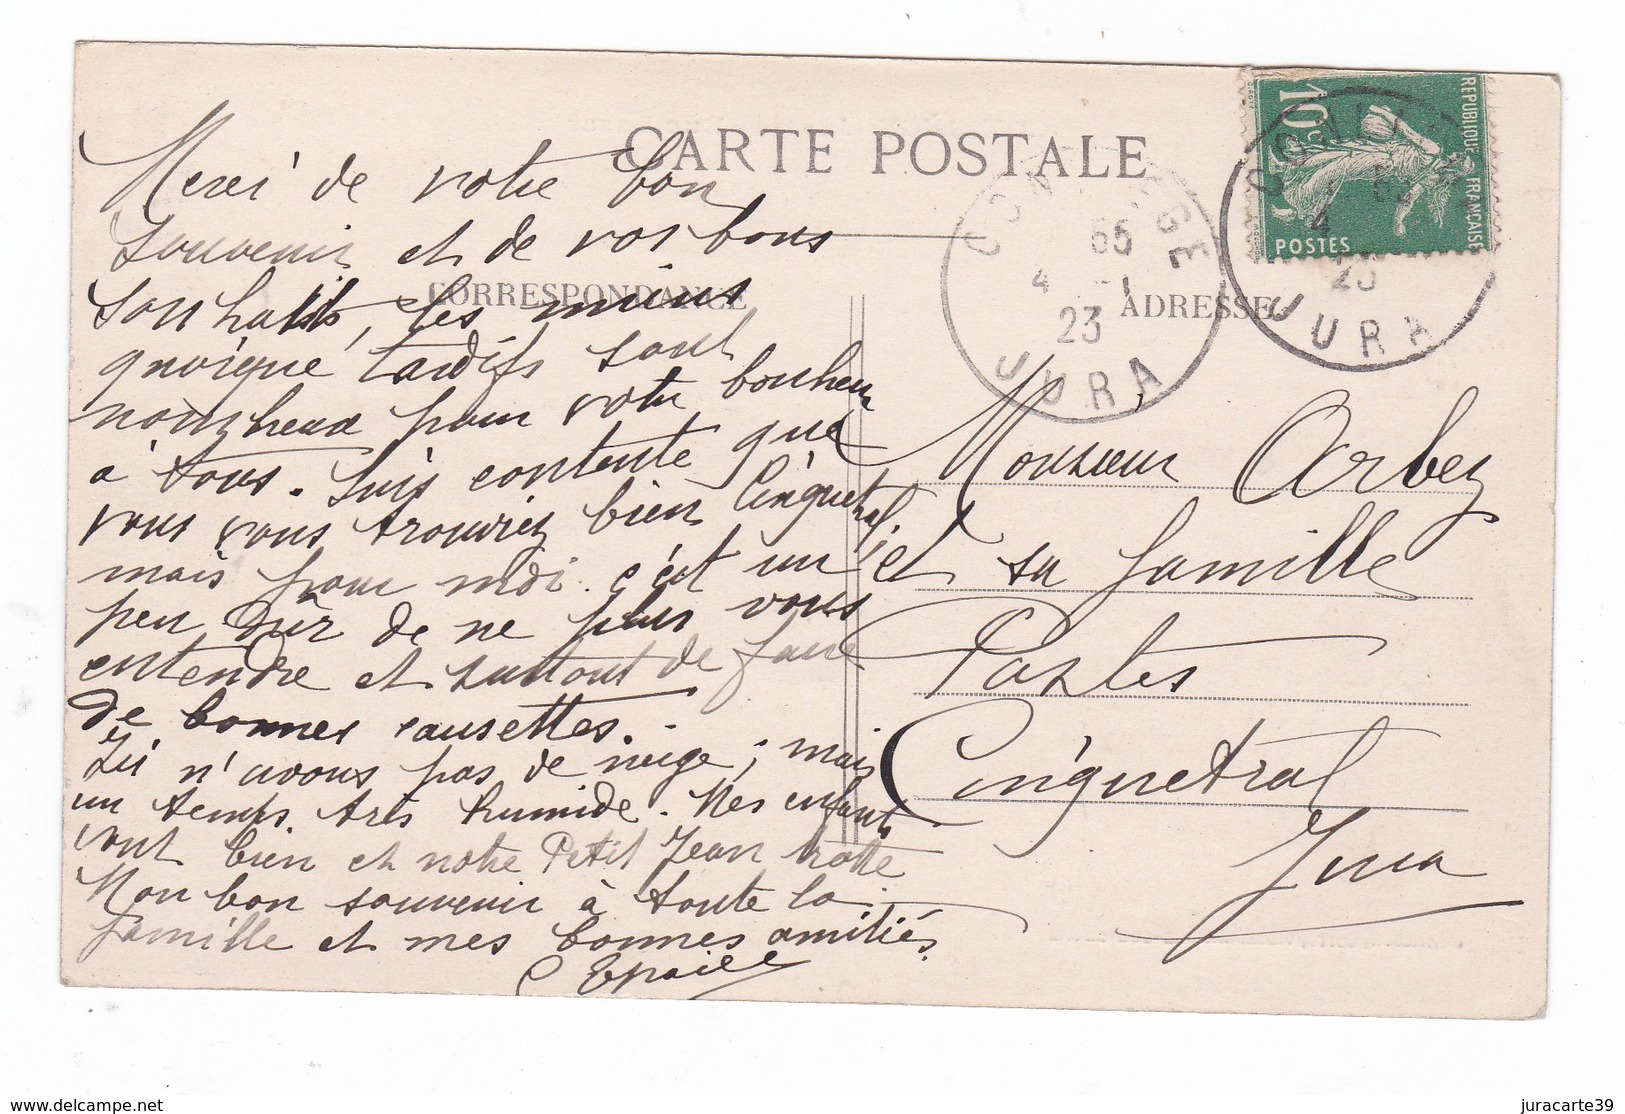 CARTE POSTALE
CORRESPONDANCE
ADRESSE
Merci de votre bon
souvenir et de vos bons
souhaits, les miens
quoique tardifs sont
nombreux pour votre bonheur
à tous. Suis contente que
vous vous trouviez bien Cinquetral,
mais pour moi c'est un
peu dur de ne plus vous
entendre et surtout de faire
de bonnes causettes.
Ici n'avons pas de neige, mais
un temps très humide. Mes enfants
vont bien et notre Petit Jean trotte
Mon bon souvenir à toute la
famille et mes bonnes amitiés.
Monsieur Arbez
et sa famille
Postes
Cinquetral
Jura
10c
REPUBLIQUE FRANÇAISE
POSTES
4
23
JURA
JURA
www.delcampe.net
juracarte39